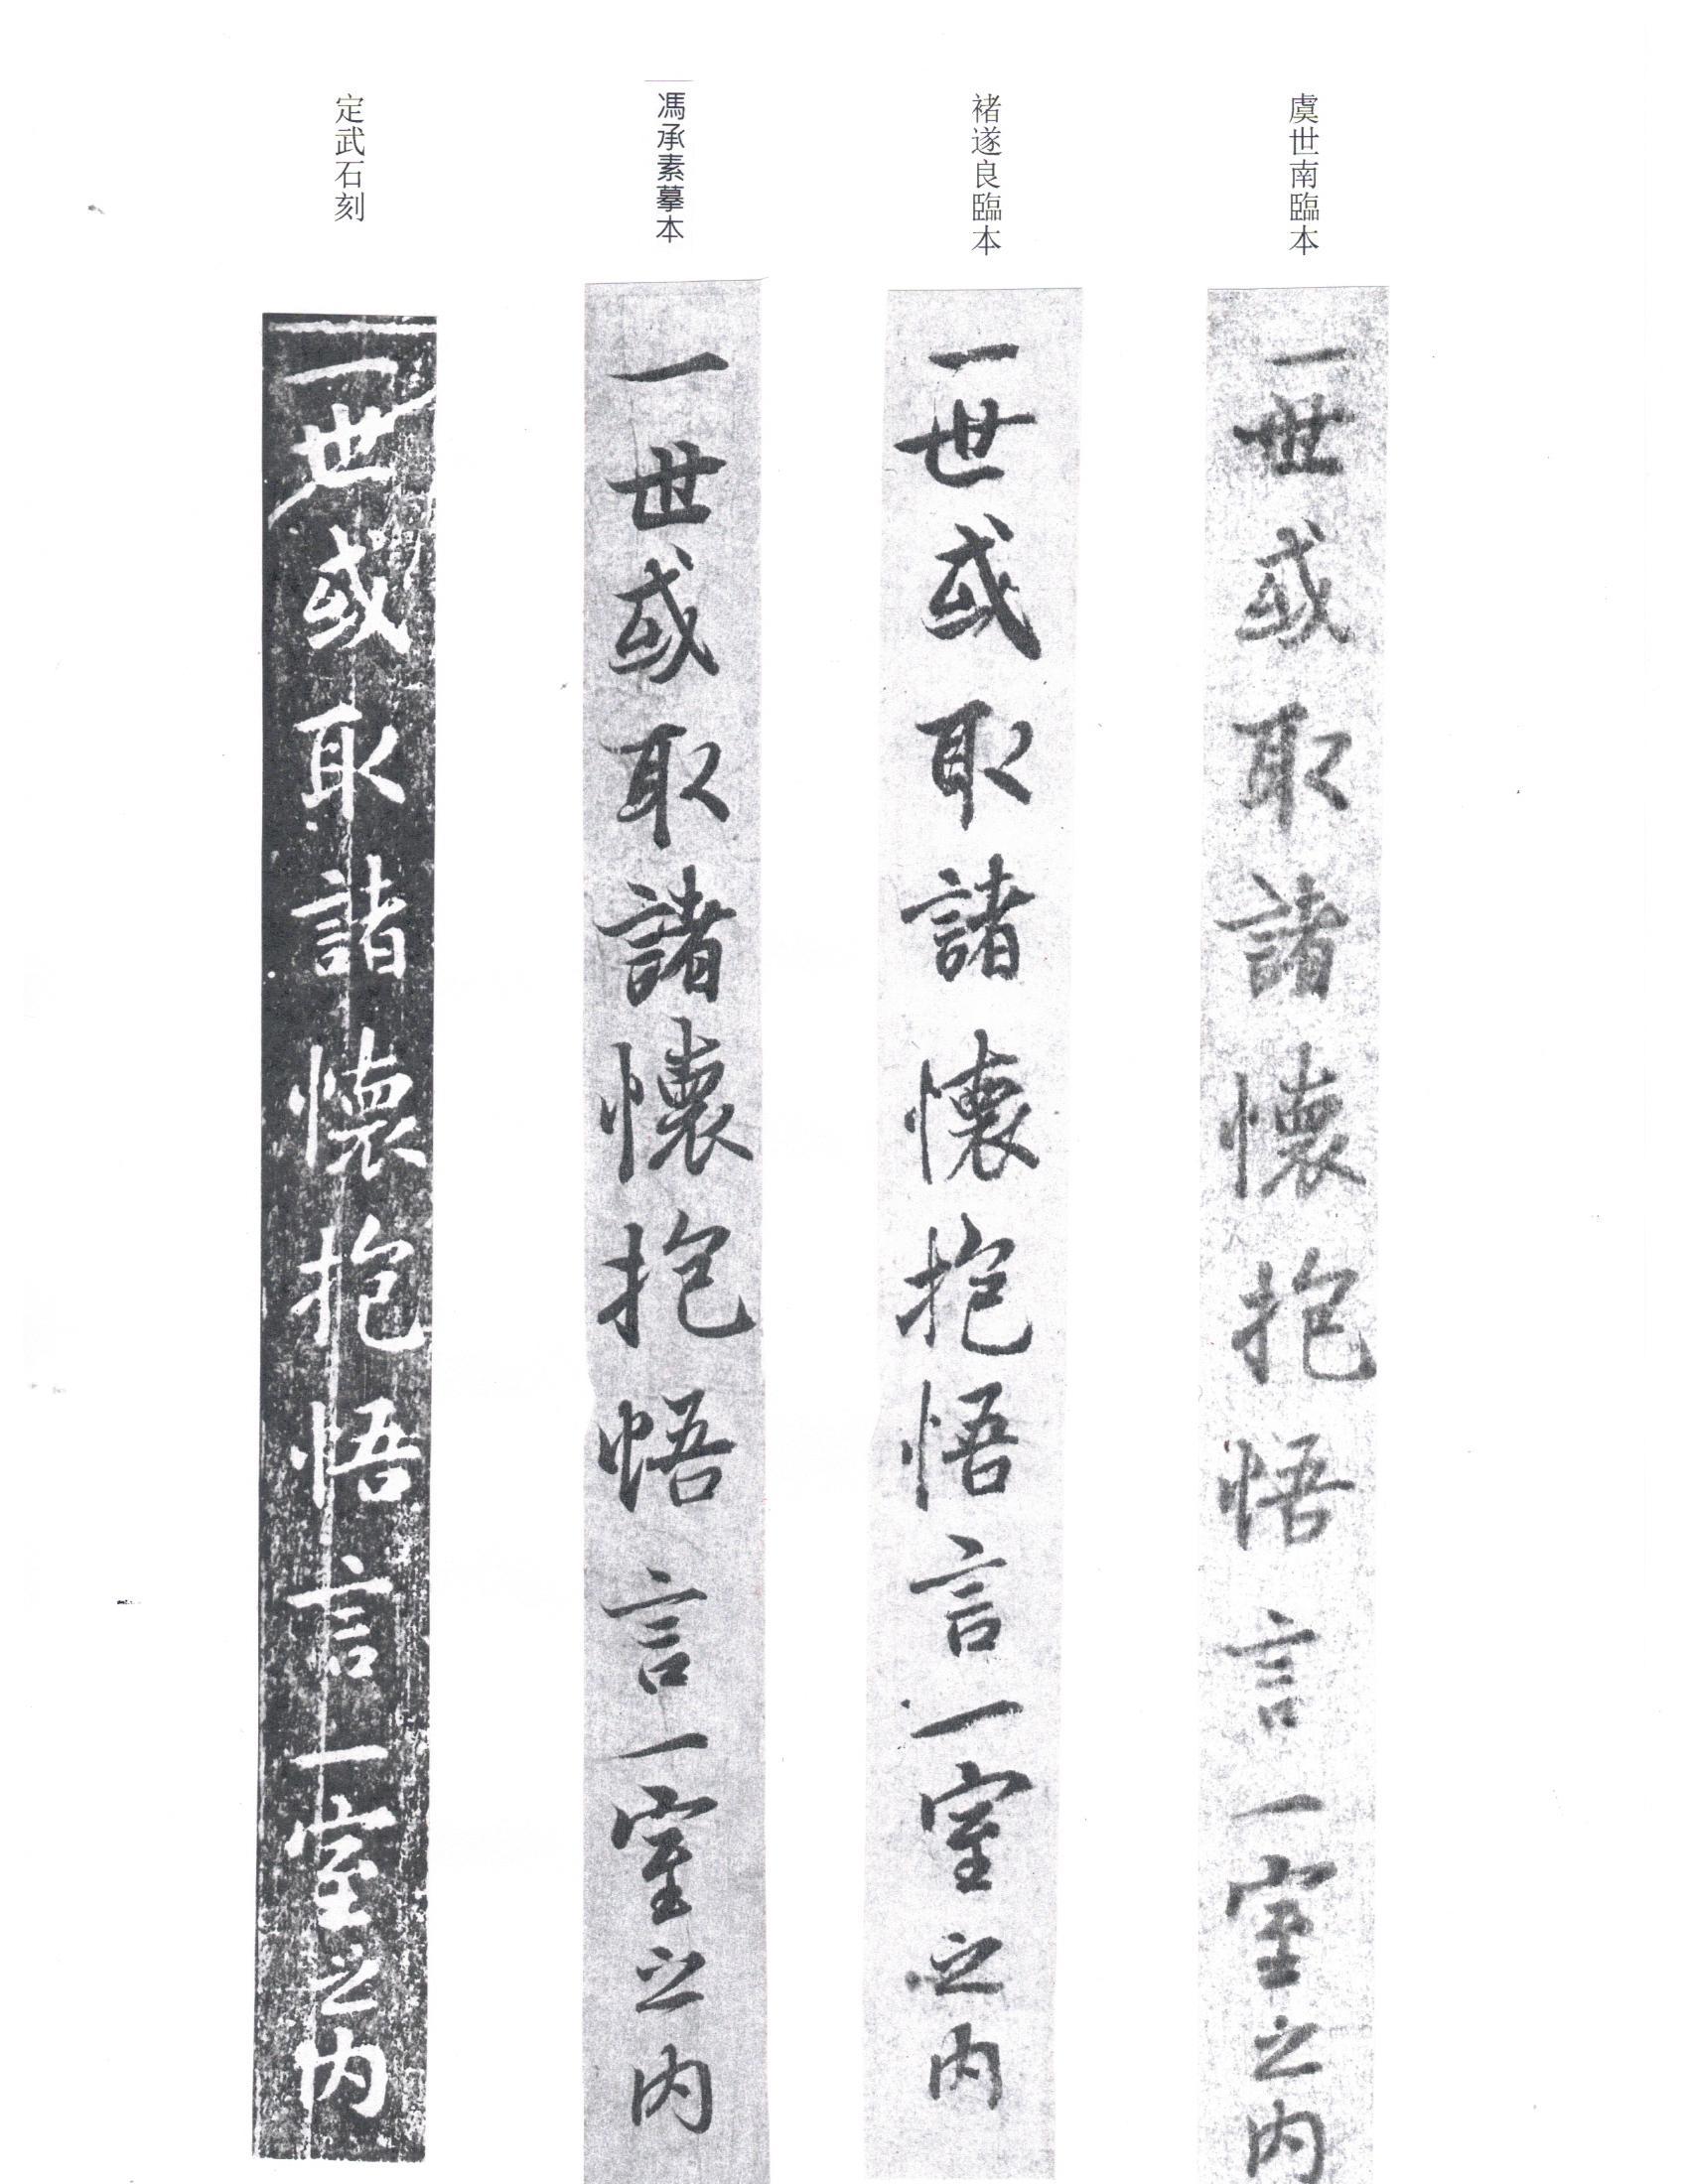 虞世南臨本
一世或取諸懷抱悟言一室之内
褚遂良臨本
一世或取諸懷抱悟言一室之内
馮承素摹本
一世或取諸懷抱悟言一室之内
定武石刻
一世或取諸懷抱悟言一室之内